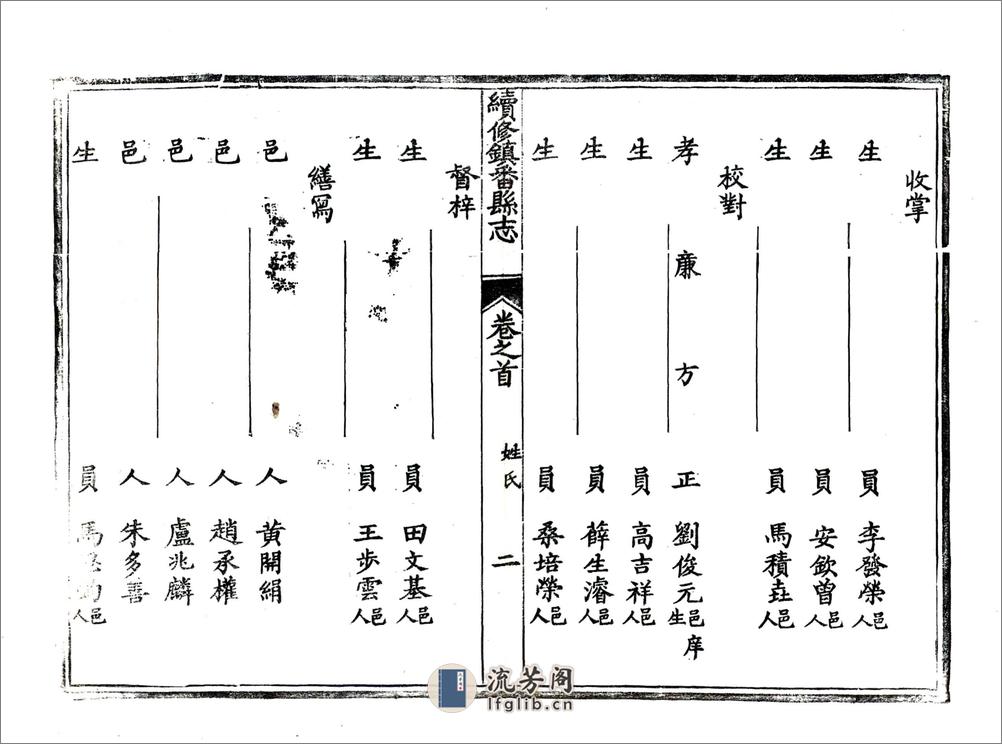 收掌
生員李發榮邑人
生員安欽曾邑人
生員馬積垚邑人
校對
孝廉方正劉俊元邑庠生
生員高吉祥邑人
生員薛生濬邑人
生員桑培榮邑人
續修鎮番縣志 卷之首 姓氏 二
督梓
生員田文基邑人
生員王步雲邑人
繕寫
邑人黃開絹
邑人趙承權
邑人盧兆麟
邑人朱多善
生員馬 邑人
流芳阁
lfglib.cn